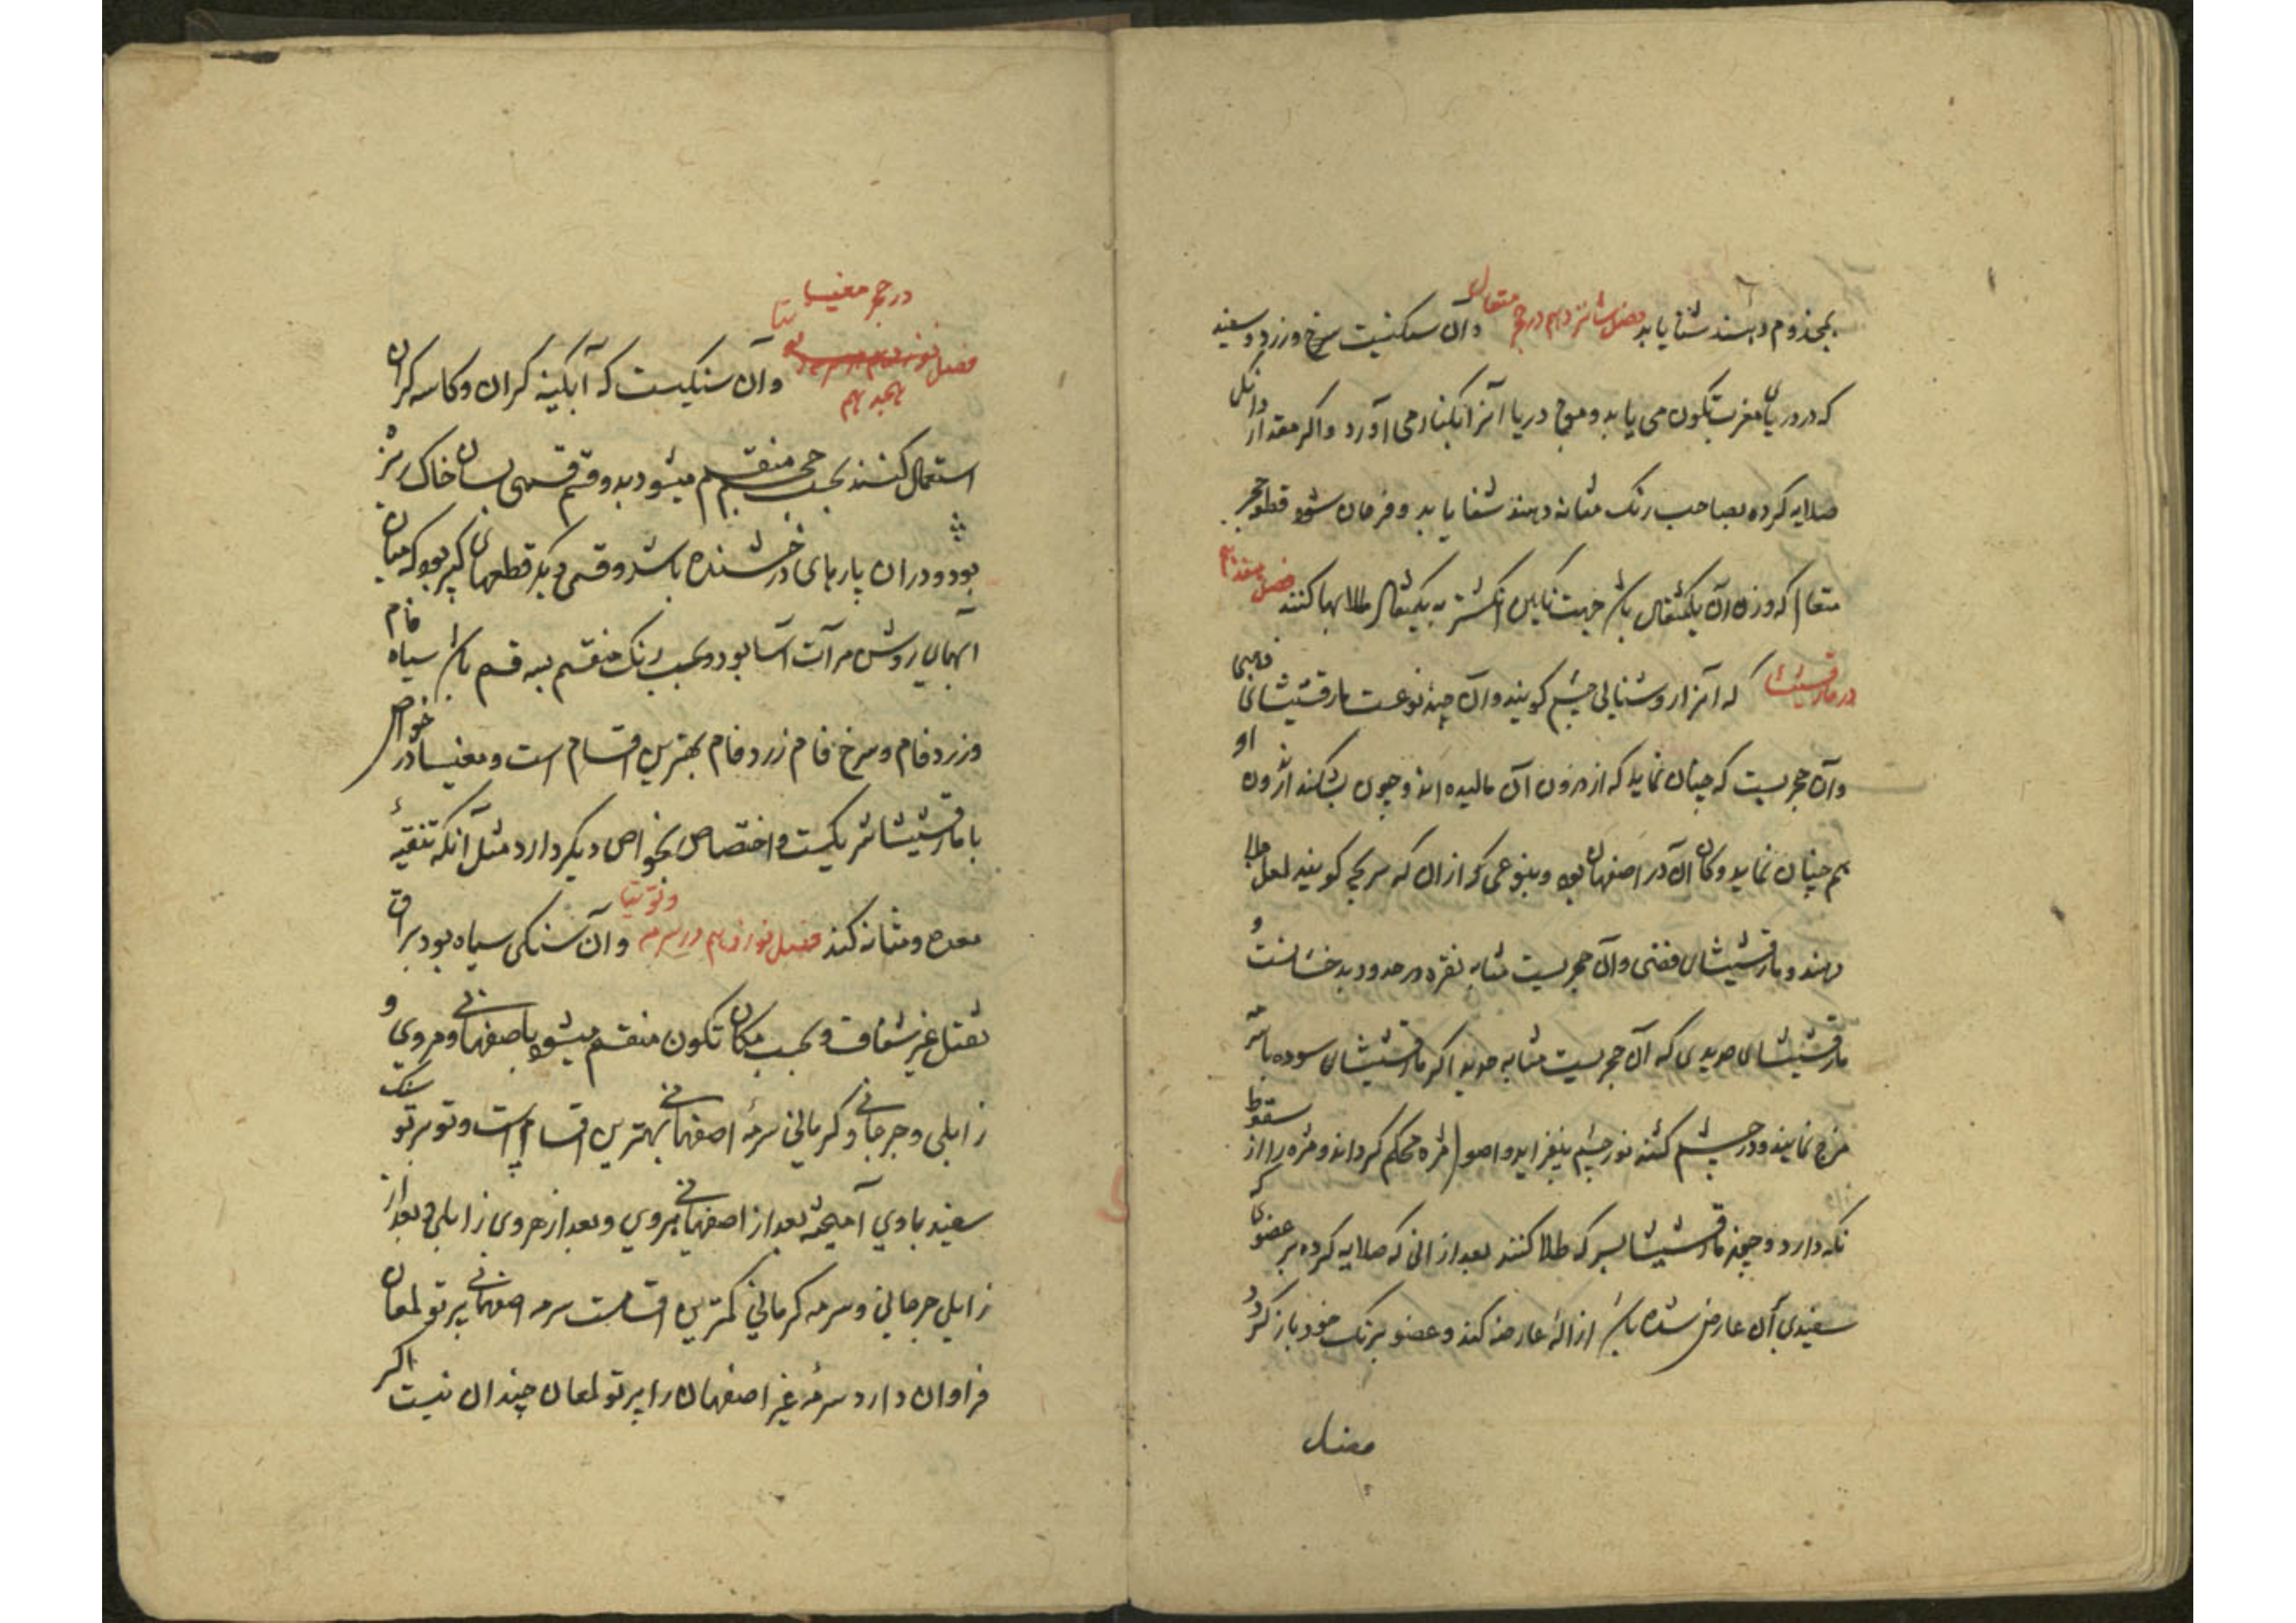 بمجذوم دهند شفا یابد فصل شانزدهم در حجر متقال و آن سنگیست سرخ و زرد و سفید
که در دریای مغرب تکون می یابد و موج دریا آنرا بکنار می آورد و اگر مقدار دانگ
صلایه کرده بصاحب رنک مثانه دهند شفا یابد و فرمان شود قطعه حجر
متقال که وزن آن یکمثقال باشد جهت نگین انگشتر به یکمثقال طلا بها کنند فصل هفدهم
در مارقشیشا که آنرا روشنائی چشم گویند و آن چند نوعست مارقشیشای ذهبی
و آن حجریست که چنان نماید که از درون آن مالیده اند و چون بشکنند اندرون او
هم چنان نماید و کان آن در اصفهان بود و بنوعی که از ان که سرخی گویند لعل جلا
دهند و مارقشیشای فضی و آن حجریست مشابه نقره در حدود بدخشانست و
مارقشیشای حدیدی که آن حجریست مشابه حدید اگر مارقشیشای سوده با سرمه
مزج نمایند و در چشم کشند نور چشم بیفزاید و اصول مژه محکم گرداند و مژه را از سقوط
نکه دارد و چون مارقشیشا بسرکه طلا کنند بعد از انی که صلایه کرده بر عضوی که
سفیدی آن عارض شده باشد ازالهٔ عارضه کند و عضو برنک خود باز کردد
فصل
در حجر مغنیسا
فصل نوزدهم
هجدهم و آن سنکیست که آبکینه کران و کاسه کران
استعمال کنند بحسب حجم منقسم میشود بدو قسم قسمی بسان خاک ریزه
بود و در ان پارهای درخشنده باشد و قسمی دیکر قطعهای کبیر بود که میان
آنهای روشن مرآت آسا بود و بحسب رنک منقسم بسه قسم باشد سیاه فام
و زرد فام و سرخ فام زرد فام بهترین اقسام است و مغنیسا در خواص
با مارقشیشا شریکست و اختصاص بخواص دیکر دارد مثل آنکه تنقیهٔ
معده و مثانه کند فصل نوزدهم در سرمه و توتیا و آن سنکی سیاه بود براق
ثقیل غیر شفاف و بحسب مکان تکون منقسم میشود باصفهانی و هروی و
زابلی و جرجانی و کرمانی سرمهٔ اصفهانی بهترین اقسام است و تو بر تو سنک
سفید با وی آمیخته بعد از اصفهانی هروی و بعد از هروی زابلی و بعد از
زابلی جرجانی و سرمه کرمانی کمترین اقسامست سرمه اصفهانی پرتو لمعان
فراوان دارد سرمهٔ غیر اصفهان را پرتو لمعان چندان نیست اکر